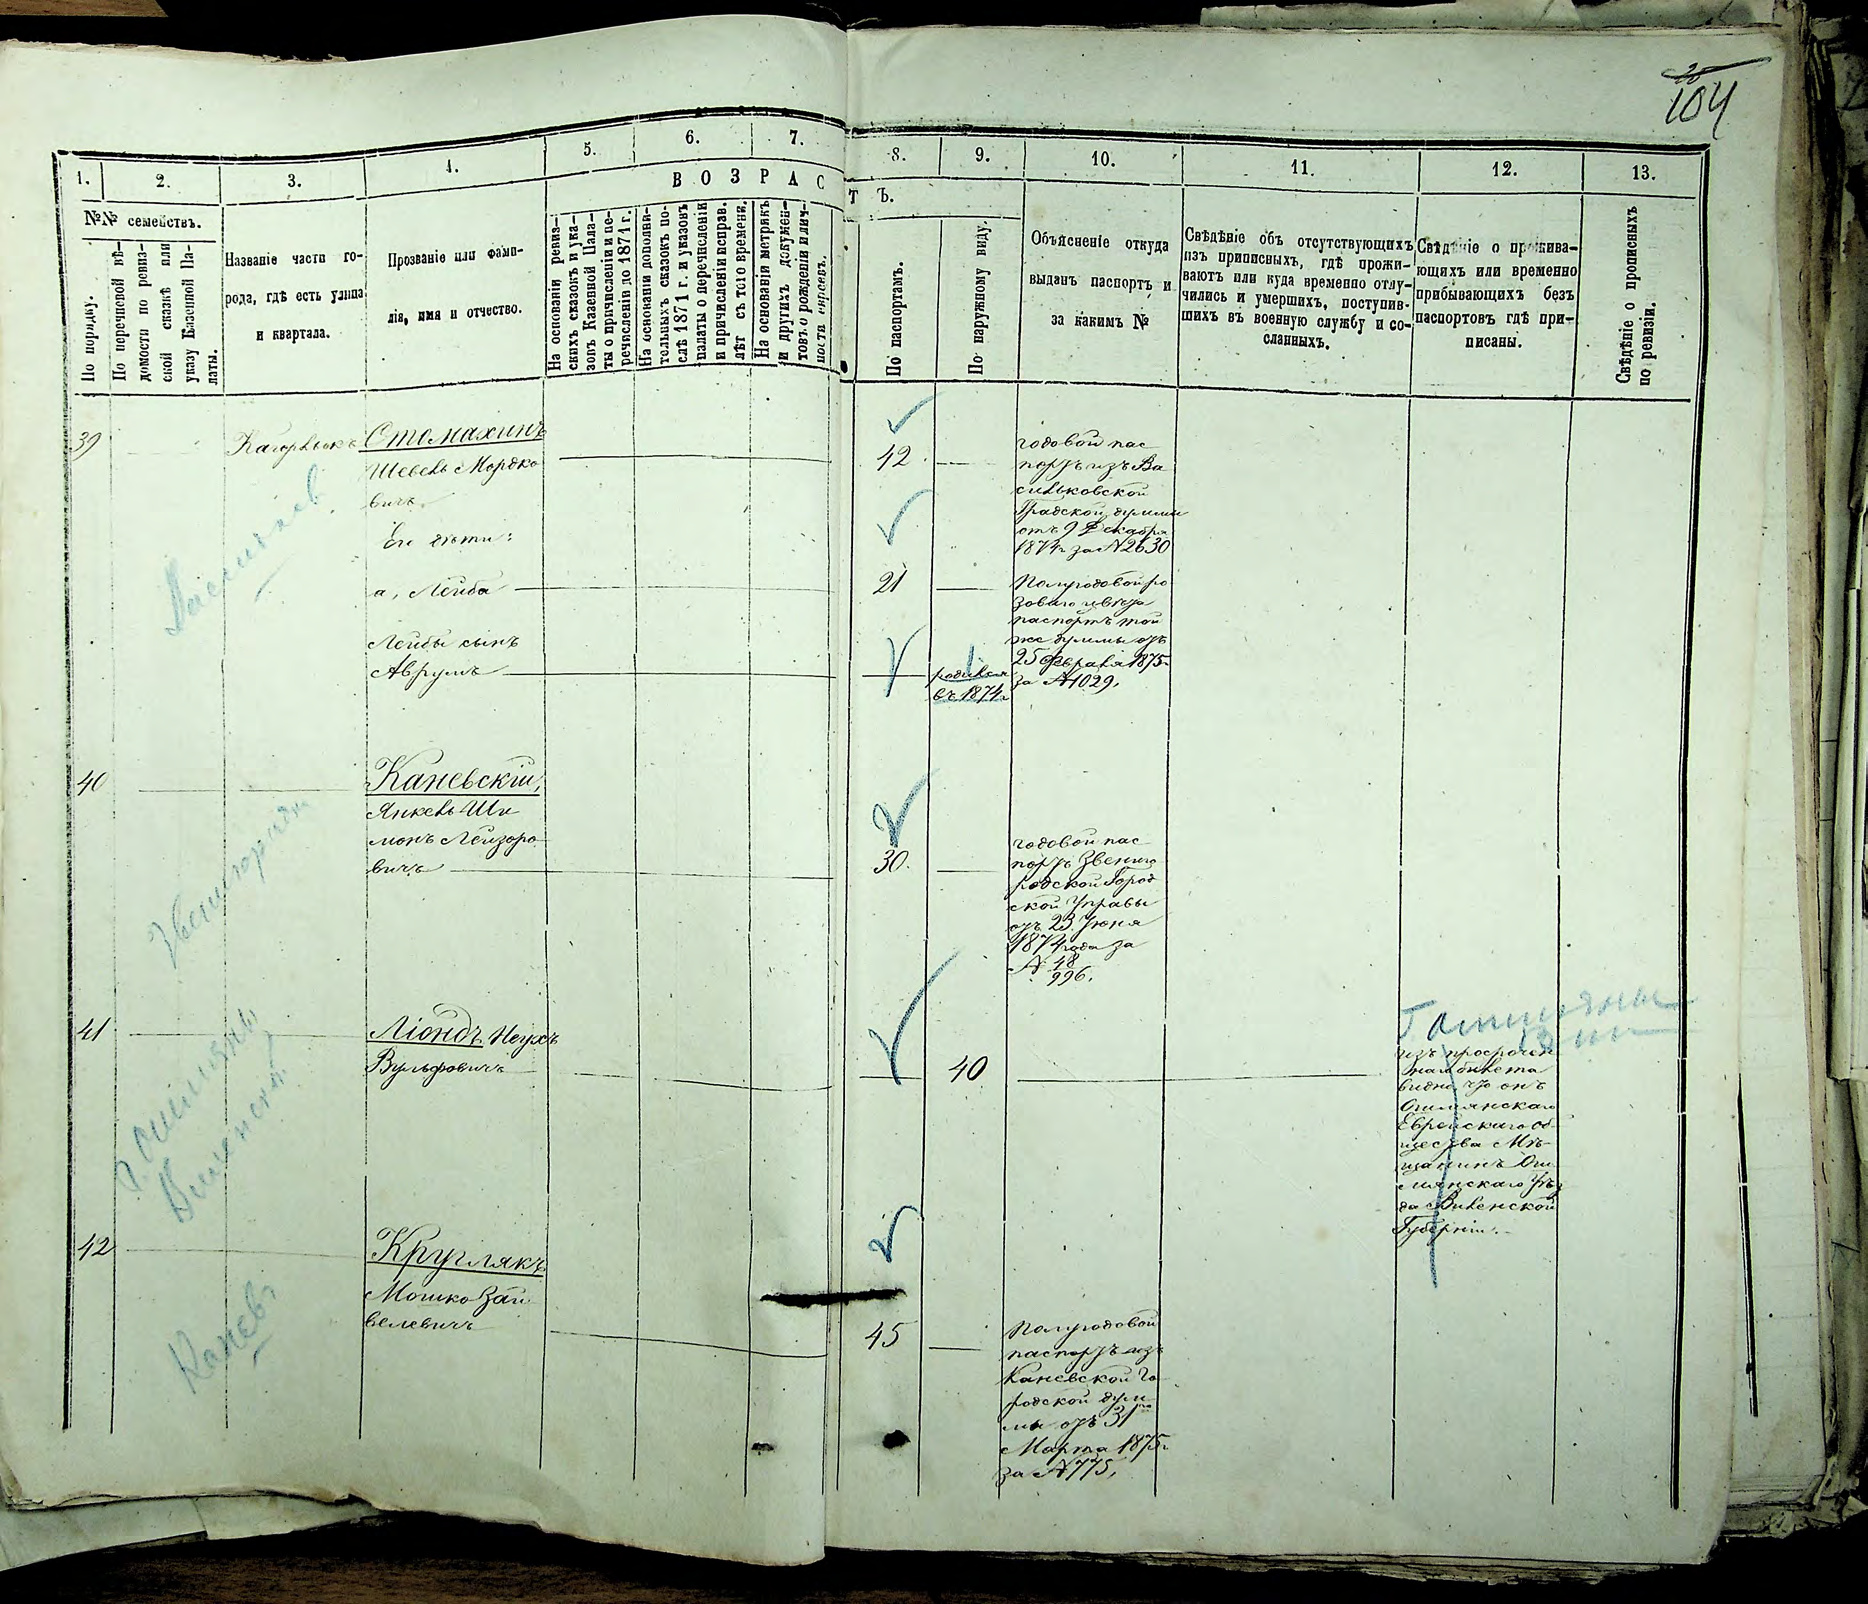 104
1.
2.
3.
4.
5.
6.
7.
8.
9.
10.
11.
12.
13.
№№ семействъ.
По порядку.
По перечневой вѣ-
домости по ревиз-
ской сказкѣ или
указу Казенной Па-
латы.
Названіе части го-
рода, гдѣ есть улица
и квартала.
Прозваніе или фами-
лія, имя и отчество.
ВОЗРАСТЪ.
На основаніи ревиз-
скихъ сказокъ и ука-
зовъ Казенной Пала-
ты о причисленіи и пе-
речисленіи до 1871 г.
На основаніи дополни-
тельныхъ сказокъ по-
слѣ 1871 г. и указовъ
палаты о перечисленіи
и причисленіи исправ.
лѣтъ съ того времени.
На основаніи метрикъ
и другихъ докумен-
товъ о рожденіи и лич-
ности евреевъ.
По паспортамъ.
По наружному виду.
Объясненіе откуда
выданъ паспортъ и
за какимъ №
Свѣдѣніе объ отсутствующихъ
изъ приписныхъ, гдѣ прожи-
ваютъ или куда временно отлу-
чились и умершихъ, поступив-
шихъ въ военную службу и со-
сланныхъ.
Свѣдѣніе о прожива-
ющихъ или временно
прибывающихъ безъ
паспортовъ гдѣ при-
писаны.
Свѣдѣніе о прописныхъ
по ревизіи.
39
Стомахинъ
Шевель Мордко
вичъ
42
годовой пас
портъ изъ Ва
сильковской
Градской думы
отъ 9 Декабря
1874 г. за № 2630
Его дѣти:
а, Лейба
21
Полугодовой ро
зоваго цвѣта
паспортъ той
же думы отъ
25 Февраля 1875 г.
за № 1029.
Лейбы сынъ
Аврумъ
родился
въ 1874 г.
40
Каневскій,
Янкель Ши
монъ Лейзоро
вичъ
30.
годовой пас
портъ Звениго
родской Город
ской Управы
отъ 23 Іюня
1874 года за
№ 48/996.
41
Ліондъ Неухъ
Вульфовичъ
40
изъ просрочен
наго билета
видно что онъ
Ошмянскаго
Еврейскаго об
щества Мѣ-
щанинъ Ош
мянскаго уѣз
да Виленской
Губерніи.
г. Ошмяны
Виленской
42
Круглякъ
Мошко Зай
велевичъ
45
Полугодовой
паспортъ изъ
Каневской Го
родской дум
мы отъ 31го
Марта 1875 г.
за № 775,
Каневъ